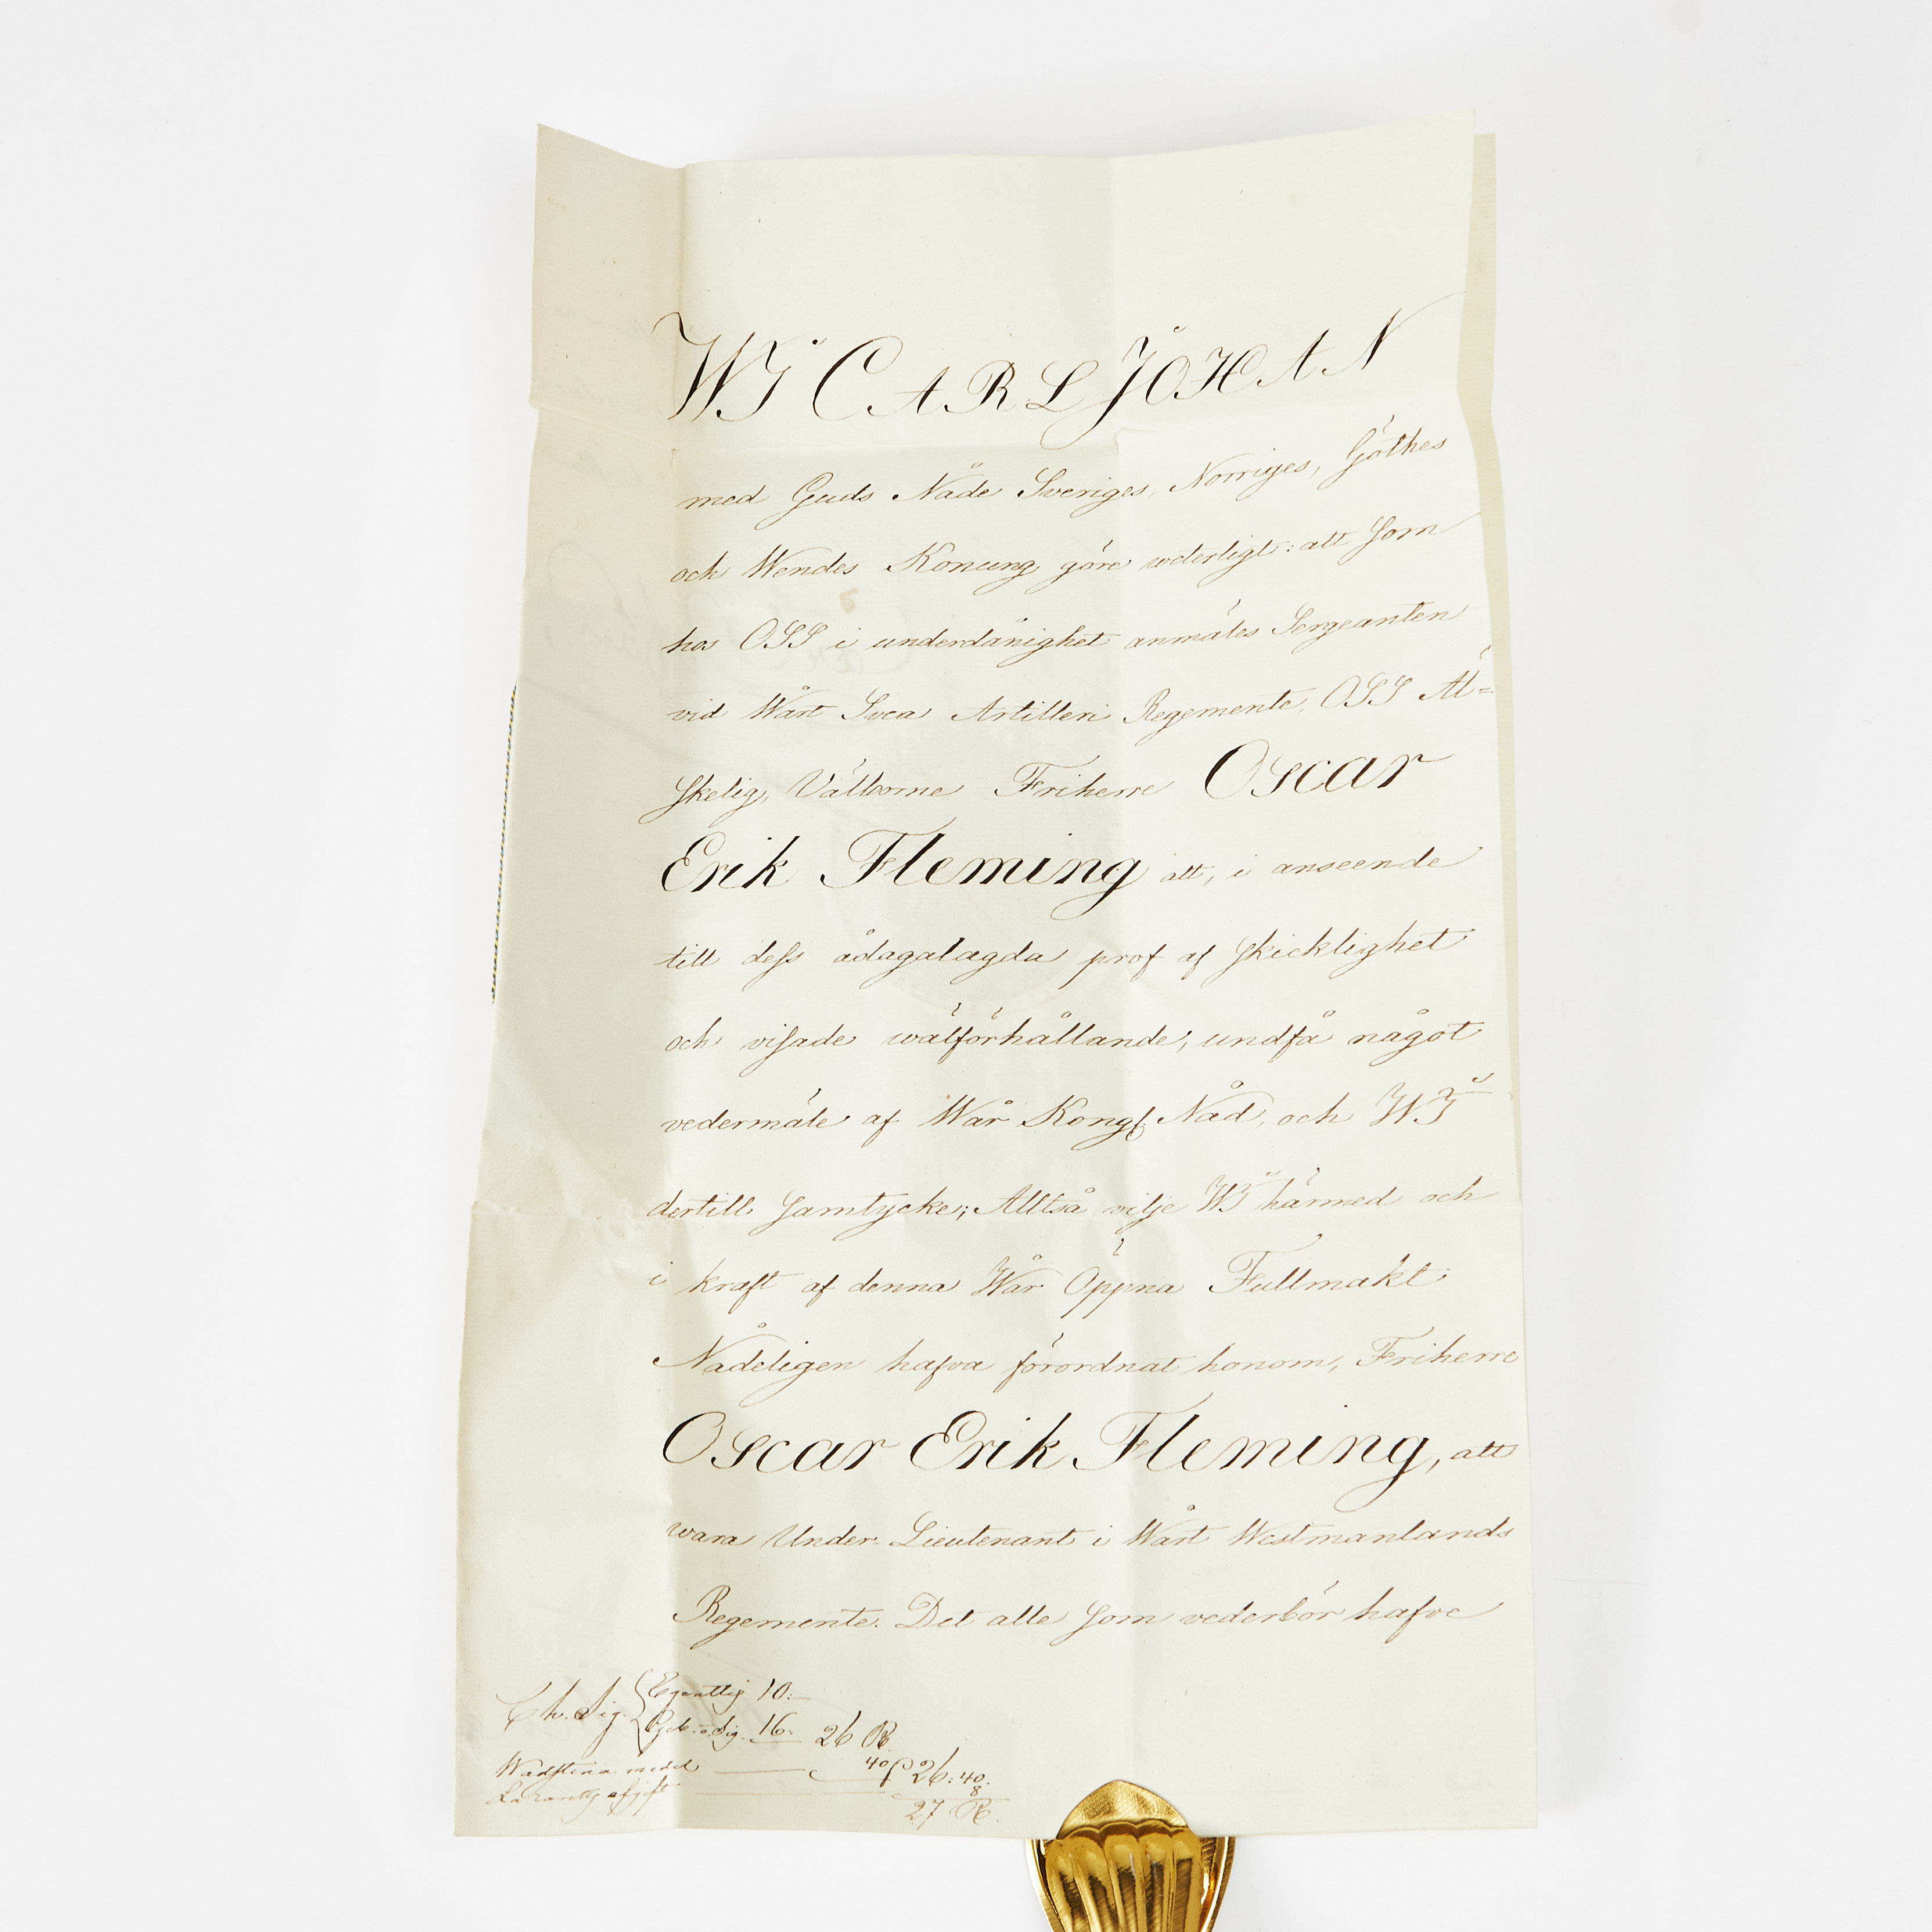 WJ CARL JOHAN
med Guds Nåde Sveriges, Norriges, Göthes
och Wendes Konung göre weterligt: att som
hos OSS i underdånighet anmäles Sergeanten
vid Wårt Svea Artilleri Regemente, OSS Äl=
skelig, Välborne Friherre Oscar
Erik Fleming att, i anseende
till dess ådagalagda prof af skicklighet
och visade wälförhållande, undfå något
vedermäle af Wår Kongl. Nåd, och WJ
dertill samtycke; Alltså vilje WJ härmed och
i kraft af denna Wår Öppna Fullmakt
Nådeligen hafva förordnat honom, Friherre
Oscar Erik Fleming, att
wara Under-Lieutenant i Wårt Westmanlands
Regemente. Det alle som vederbör hafve
Ch. Sig. Egentlig 10:—
Sig. 16: 26 R
Wadstena medel 40 26:40.
Lazaretts afgift 8
27 R.